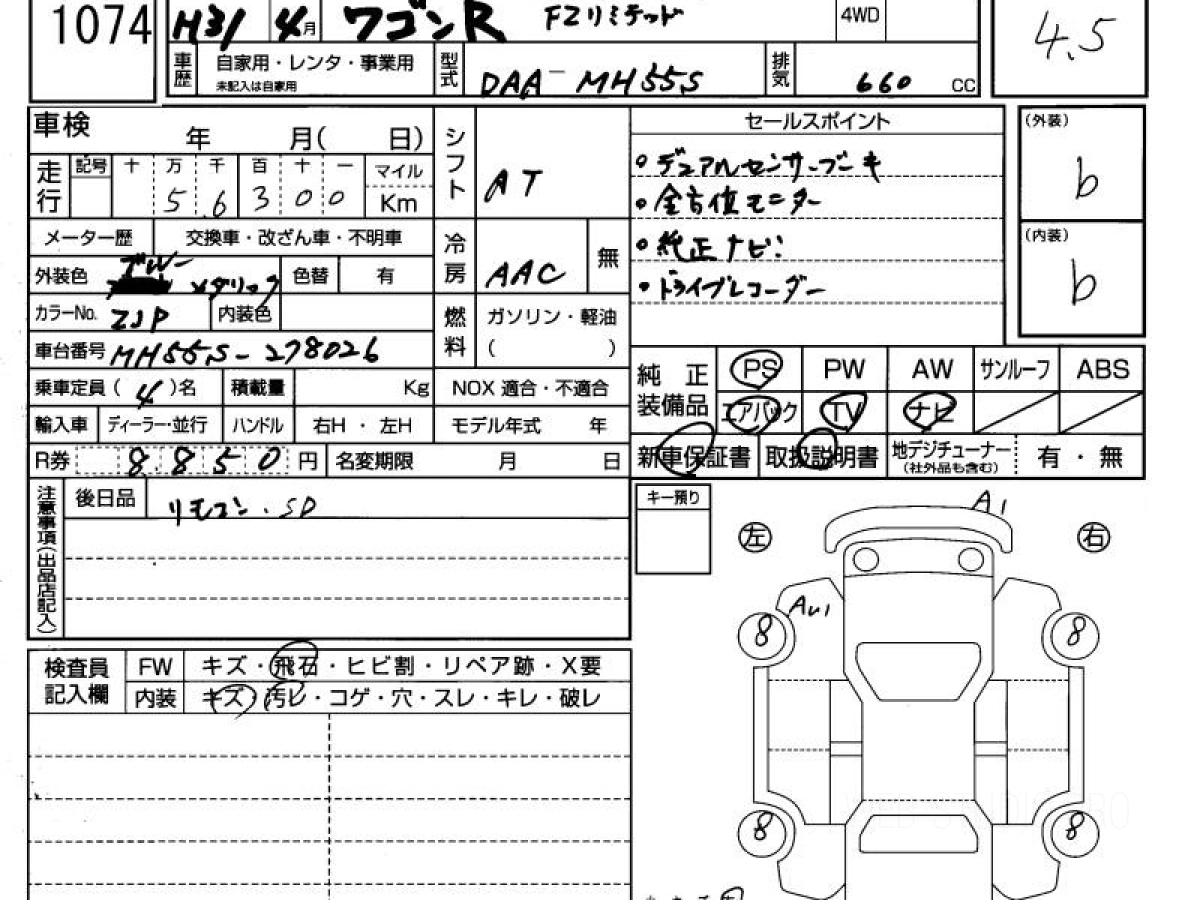 1074 H31 4月 ワゴンR FZリミテッド 4WD 4.5
車歴 自家用・レンタ・事業用 未記入は自家用 型式 DAA-MH55S 排気 660 CC
車検 年 月( 日) シフト AT セールスポイント (外装) b
走行 記号 十 万 千 百 十 一 マイル
5 6 3 0 0 Km
・デュアルセンサーブーキ
・全方位モニター
・純正ナビ!
・ドライブレコーダー
メーター歴 交換車・改ざん車・不明車 冷房 AAC 無 (内装) b
外装色 ブルー メタリック 色替 有
カラーNo. ZJP 内装色 燃料 ガソリン・軽油
( )
車台番号 MH55S-278026
乗車定員(4)名 積載量 Kg NOX 適合・不適合
純正装備品 PS PW AW サンルーフ ABS
エアバック TV ナビ
輸入車 ディーラー・並行 ハンドル 右H・左H モデル年式 年
R券 8.850円 名変期限 月 日
新車保証書 取扱説明書 地デジチューナー (社外品も含む) 有・無
注意事項(出品店記入) 後日品 リモコン.SD
キー預り
左 右
A1
AU1
8 8
8 8
検査員記入欄 FW キズ・飛石・ヒビ割・リペア跡・X要
内装 キズ・汚レ・コゲ・穴・スレ・キレ・破レ